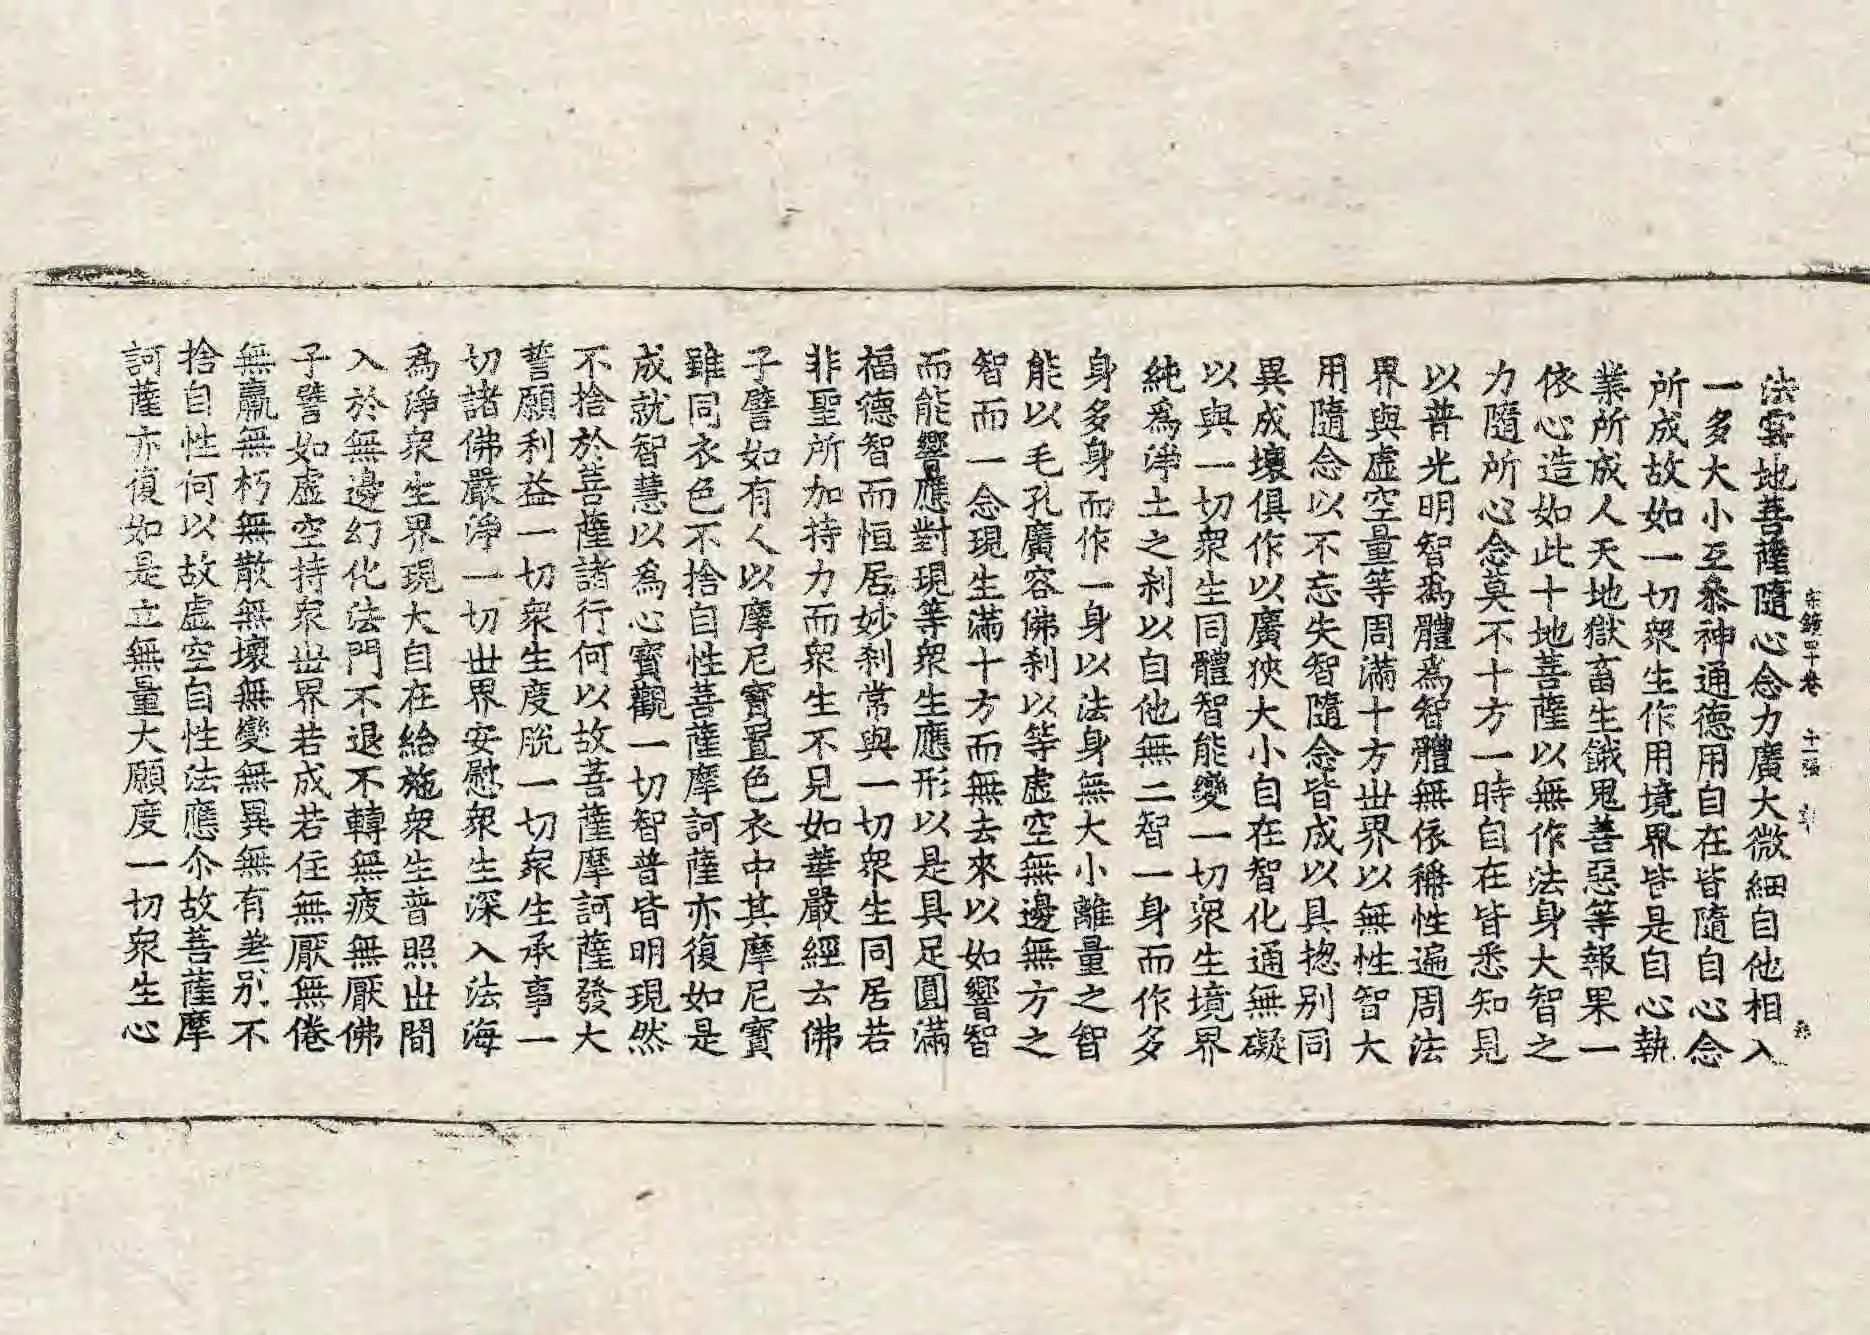 法雲地菩薩隨心念力廣大微細自他相入
一多大小互叅神通德用自在皆隨自心念
所成故如一切衆生作用境界皆是自心執
業所成人天地獄畜生餓鬼善惡等報果一
依心造如此十地菩薩以無作法身大智之
力隨所心念莫不十方一時自在皆悉知見
以普光明智爲體爲智體無依稱性遍周法
界與虛空量等周滿十方世界以無性智大
用隨念以不忘失智隨念皆成以具揔別同
異成壞俱作以廣狹大小自在智化通無礙
以與一切衆生同體智能變一切衆生境界
純爲淨土之刹以自他無二智一身而作多
身多身而作一身以法身無大小離量之智
能以毛孔廣容佛刹以等虛空無邊無方之
智而一念現生滿十方而無去來以如響智
而能響應對現等衆生應形以是具足圓滿
福德智而恒居妙刹常與一切衆生同居若
非聖所加持力而衆生不見如華嚴經云佛
子譬如有人以摩尼寶置色衣中其摩尼寶
雖同衣色不捨自性菩薩摩訶薩亦復如是
成就智慧以爲心寶觀一切智普皆明現然
不捨於菩薩諸行何以故菩薩摩訶薩發大
誓願利益一切衆生度脫一切衆生承事一
切諸佛嚴淨一切世界安慰衆生深入法海
爲淨衆生界現大自在給施衆生普照世間
入於無邊幻化法門不退不轉無疲無厭佛
子譬如虛空持衆世界若成若住無厭無倦
無羸無朽無散無壞無變無異無有差別不
捨自性何以故虛空自性法應介故菩薩摩
訶薩亦復如是立無量大願度一切衆生心
宗鏡四十卷 十一張